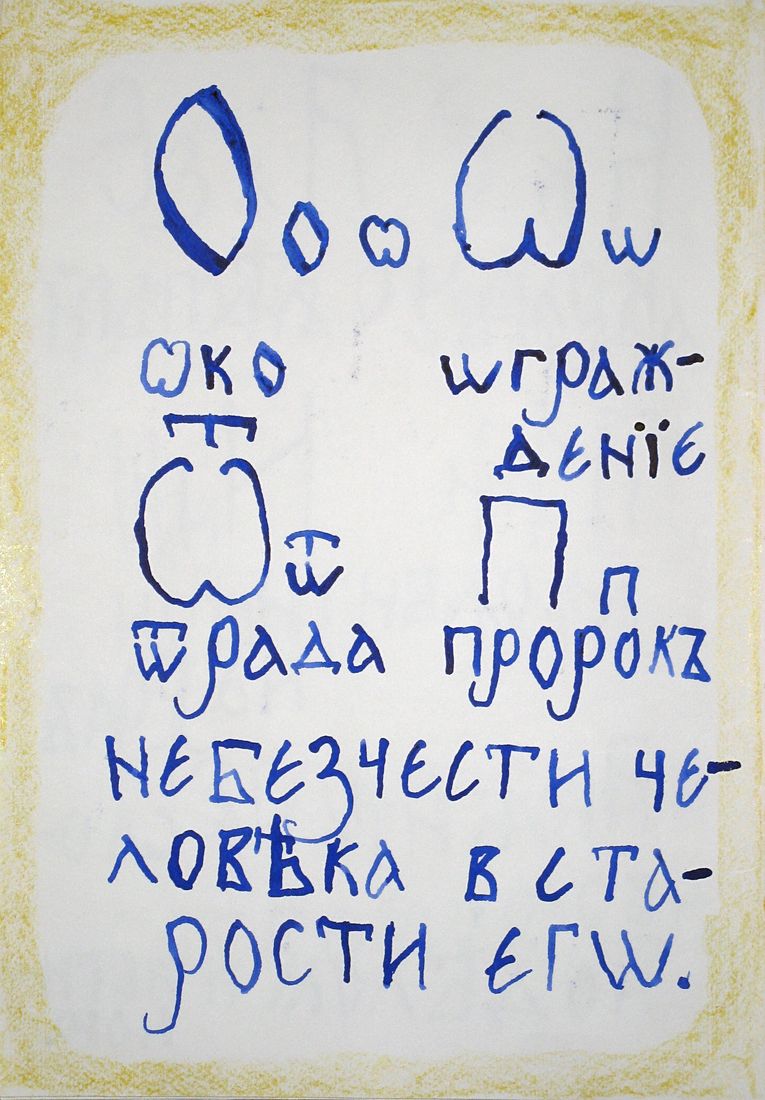 О о ѡ Ѡ ѡ
ѡко ѡграж-
денїе
Ѿ ѿ П п
ѿрада пророкъ
небезчести че-
ловѣка в ста-
рости егѡ.